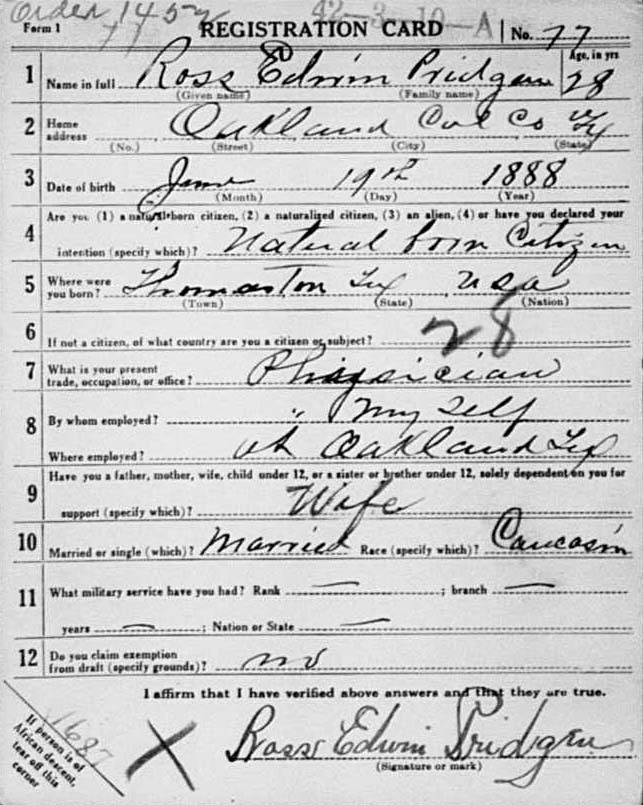 Order 1452
42-3-10-A
Form 1
77
REGISTRATION CARD
No. 77
1 Name in full Ross Edwin Pridgen
Age, in yrs 28
(Given name) (Family name)
2 Home address Oakland Col Co Tex
(No.) (Street) (City) (State)
3 Date of birth June 19th 1888
(Month) (Day) (Year)
4 Are you (1) a natural-born citizen, (2) a naturalized citizen, (3) an alien, (4) or have you declared your
intention (specify which)? Natural born Citizen
5 Where were you born? Thomaston Tex USA
(Town) (State) (Nation)
6 If not a citizen, of what country are you a citizen or subject?
28
7 What is your present trade, occupation, or office? Physician
8 By whom employed? " My Self
Where employed? at Oakland Tex
9 Have you a father, mother, wife, child under 12, or a sister or brother under 12, solely dependent on you for
support (specify which)? Wife
10 Married or single (which)? Married Race (specify which)? Caucasin
11 What military service have you had? Rank — ; branch —
years — ; Nation or State —
12 Do you claim exemption from draft (specify grounds)? no
I affirm that I have verified above answers and that they are true.
If person is of
African descent,
tear off this
corner
1687
X Ross Edwin Pridgen
(Signature or mark)